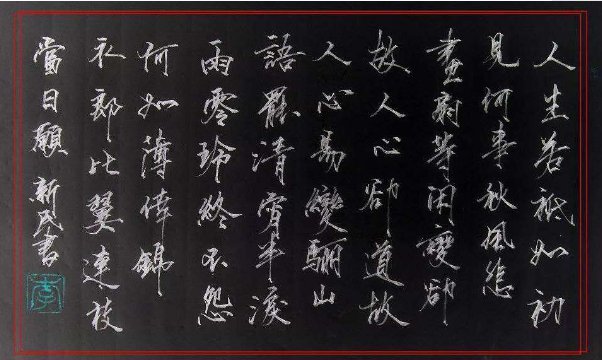 人生若祗如初
見何事秋風悲
畫扇等閑變卻
故人心卻道故
人心易變驪山
語罷清宵半淚
雨零玲終不怨
何如薄倖錦
衣郎比翼連枝
當日願 新民書
李